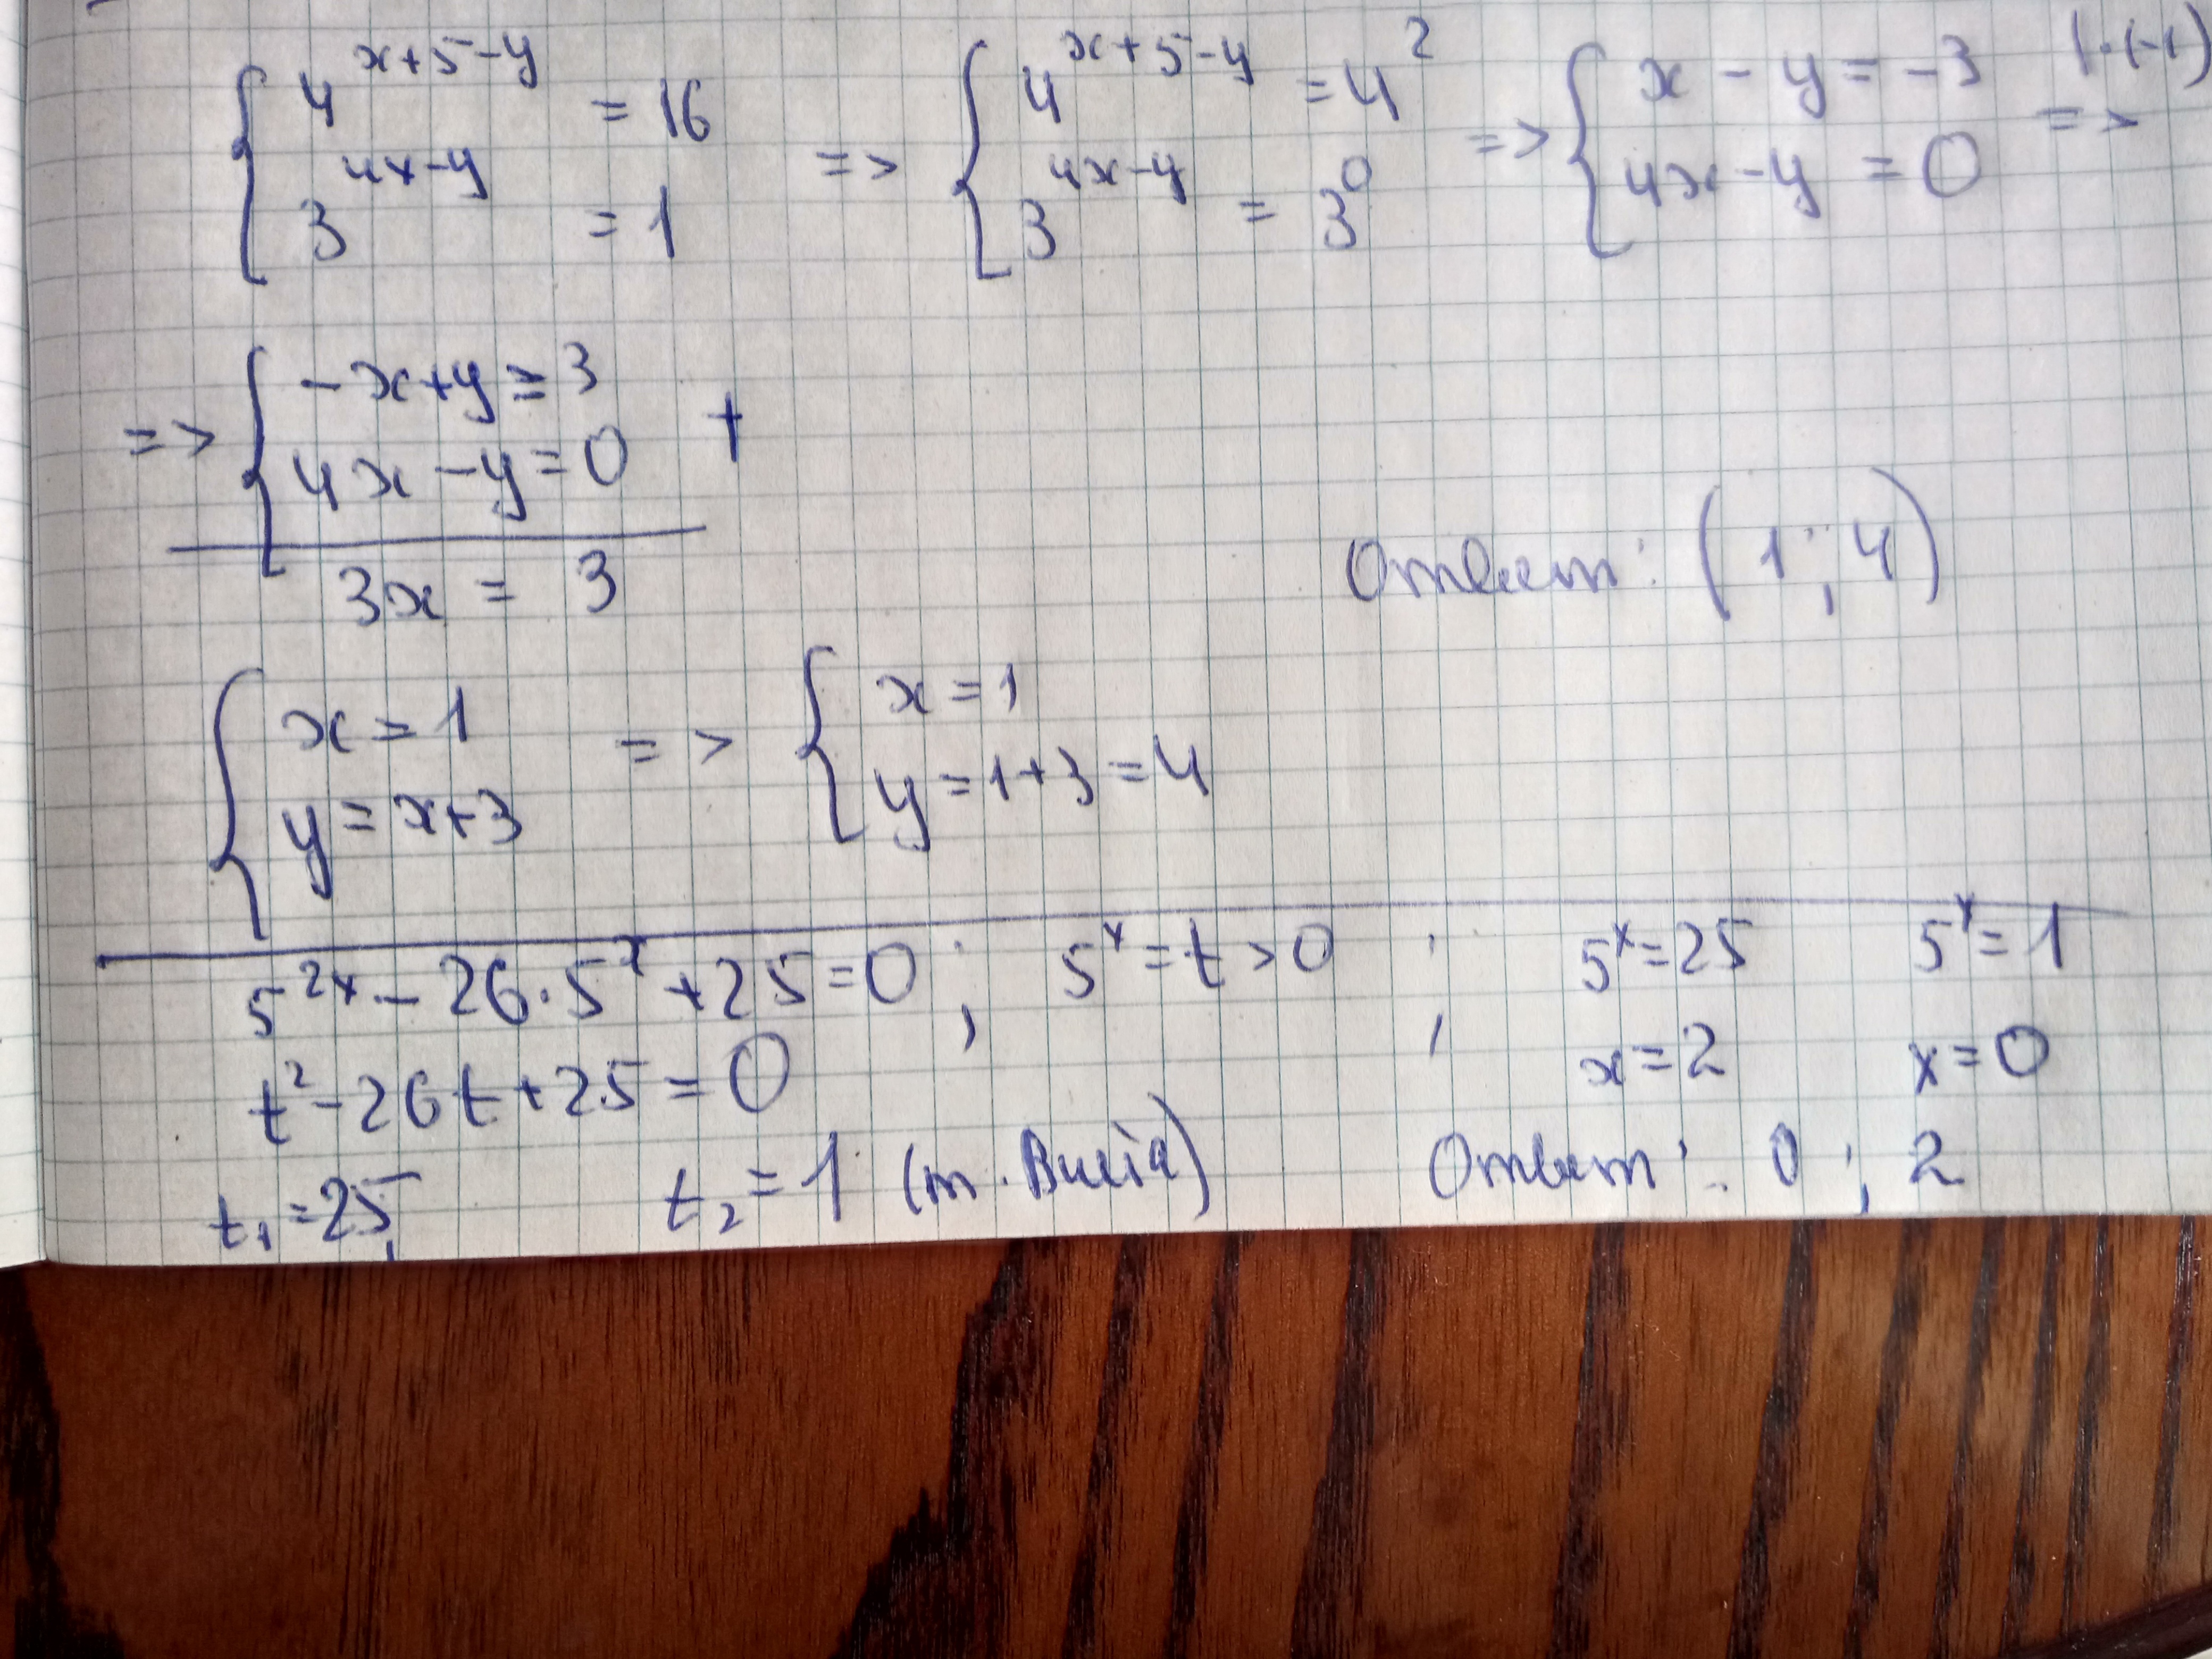 { 4^(x+5-y) = 16 => { 4^(x+5-y) = 4^2 => { x - y = -3 |·(-1)
3^(4x-y) = 1 3^(4x-y) = 3^0 4x - y = 0 =>
=> { -x+y = 3
4x - y = 0 +
3x = 3
Ответ: (1; 4)
{ x = 1 => { x = 1
y = x+3 y = 1+3 = 4
5^(2x) - 26·5^x + 25 = 0 ; 5^x = t > 0 ; 5^x = 25 5^x = 1
t^2 - 26t + 25 = 0 x = 2 x = 0
t₁ = 25, t₂ = 1 (т. Виета) Ответ: 0; 2